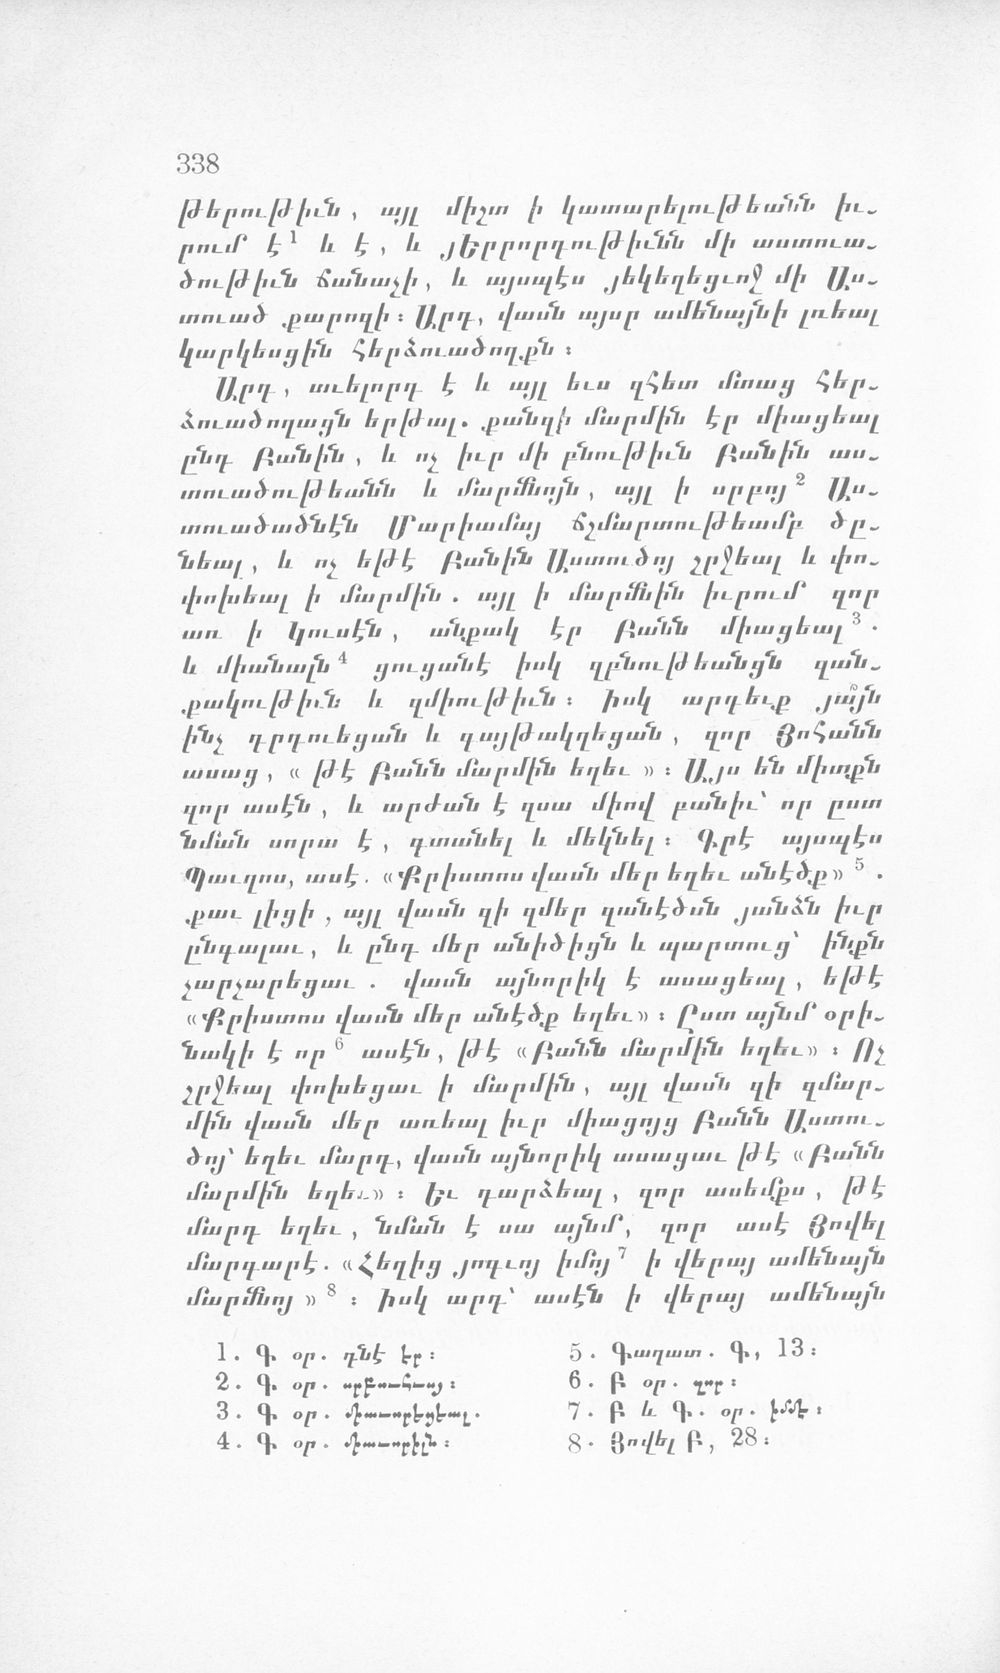 338
թերութիւն, այլ միշտ ի կատարելութեանն իւ-
րում է¹ և է, և յԵրրորդութիւնն մի աստուա-
ծութիւն ճանաչի, և այսպէս յեկեղեցւոջ մի Աս-
տուած քարոզի։ Արդ, վասն այսր ամենայնի լռեալ
կարկեսցին հերձուածողքն։
Արդ, աւելորդ է և այլ ևս զհետ մտաց հեր-
ձուածողացն երթալ. քանզի մարմին էր միացեալ
ընդ Բանին, և ոչ իւր մի բնութիւն Բանին աս-
տուածութեանն և մարմնոյն, այլ ի սրբոյ² Աս-
տուածածնէն Մարիամայ ճշմարտութեամբ ծը-
նեալ, և ոչ եթէ Բանին Աստուծոյ շրջեալ և փո-
փոխեալ ի մարմին. այլ ի մարմնին իւրում զոր
առ ի Կուսէն, անքակ էր Բանն միացեալ³.
և միանալն⁴ ցուցանէ իսկ զբնութեանցն զան-
քակութիւն և զմիութիւն։ Իսկ արդեւք յա՞յն
ինչ դրդուեցան և գայթակղեցան, զոր Յոհանն
ասաց, « թէ Բանն մարմին եղեւ »։ Այս են միտքն
զոր ասէն, և արժան է զսա միով բանիւ՝ որ ըստ
նման սորա է, գտանել և մեկնել։ Գրէ այսպէս
Պաւղոս, ասէ. «Քրիստոս վասն մեր եղեւ անէծք» ⁵.
քաւ լիցի, այլ վասն զի զմեր զանէծսն յանձն իւր
ընդալաւ, և ընդ մեր անիծիցն և պարտուց՝ ինքն
չարչարեցաւ. վասն այնորիկ է ասացեալ, եթէ
«Քրիստոս վասն մեր անէծք եղեւ»։ Ըստ այնմ օրի-
նակի է որ⁶ ասէն, թէ «Բանն մարմին եղեւ»։ Ոչ
շրջեալ փոխեցաւ ի մարմին, այլ վասն զի զմար-
մին վասն մեր առեալ իւր միացոյց Բանն Աստու-
ծոյ՝ եղեւ մարդ, վասն այնորիկ ասացաւ թէ «Բանն
մարմին եղեւ»։ Եւ դարձեալ, զոր ասեմքս, թէ
մարդ եղեւ, նման է սա այնմ, զոր ասէ Յովել
մարգարէ. «Հեղից յոգւոյ իմոյ⁷ ի վերայ ամենայն
մարմնոյ» ⁸։ Իսկ արդ՝ ասէն ի վերայ ամենայն
1. Գ. օր. դնէ էր։
2. Գ. օր. սրբուհւոյ։
3. Գ. օր. միաւորեցեալ.
4. Գ. օր. միաւորիլն։
5. Գաղատ. Գ, 13։
6. Բ օր. զոր։
7. Բ և Գ. օր. իմմէ։
8. Յովել Բ, 28։